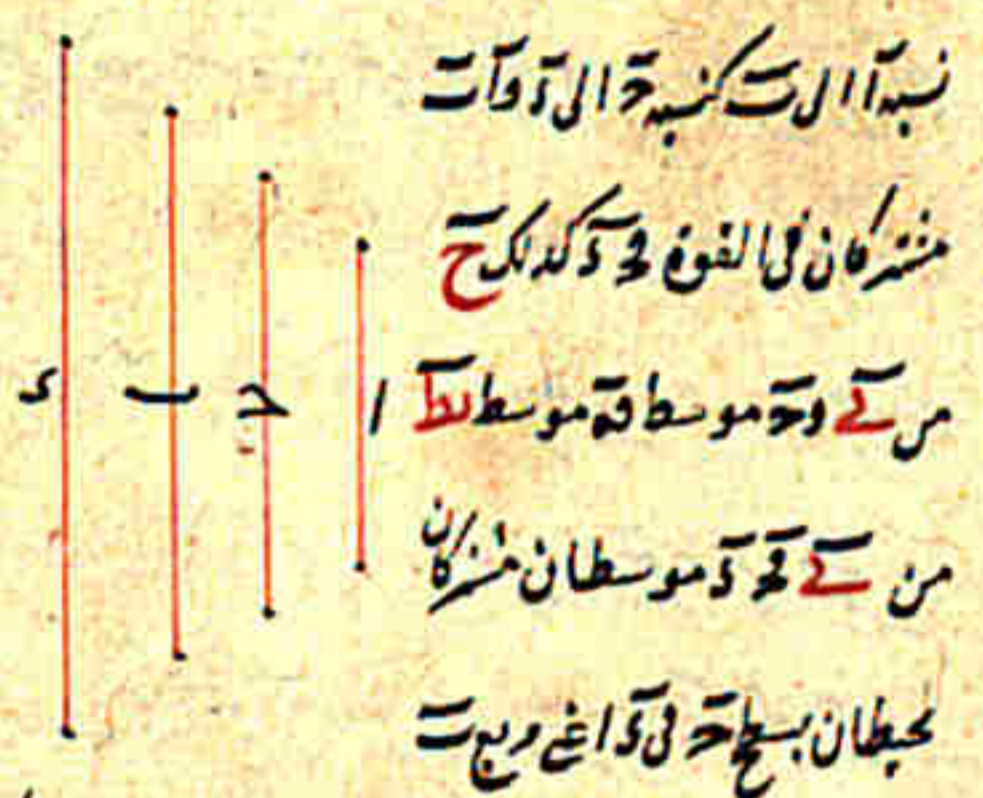 نسبة ا الى ب كنسبة ج الى د و ا ب
مشتركان فى القوة فج د كذلك ح
من ے و ج موسط فد موسط لط
من ے فج د موسطان مشتركان
يحيطان بسطح ج فى د اعنى مربع ب
ا
ج
ب
د